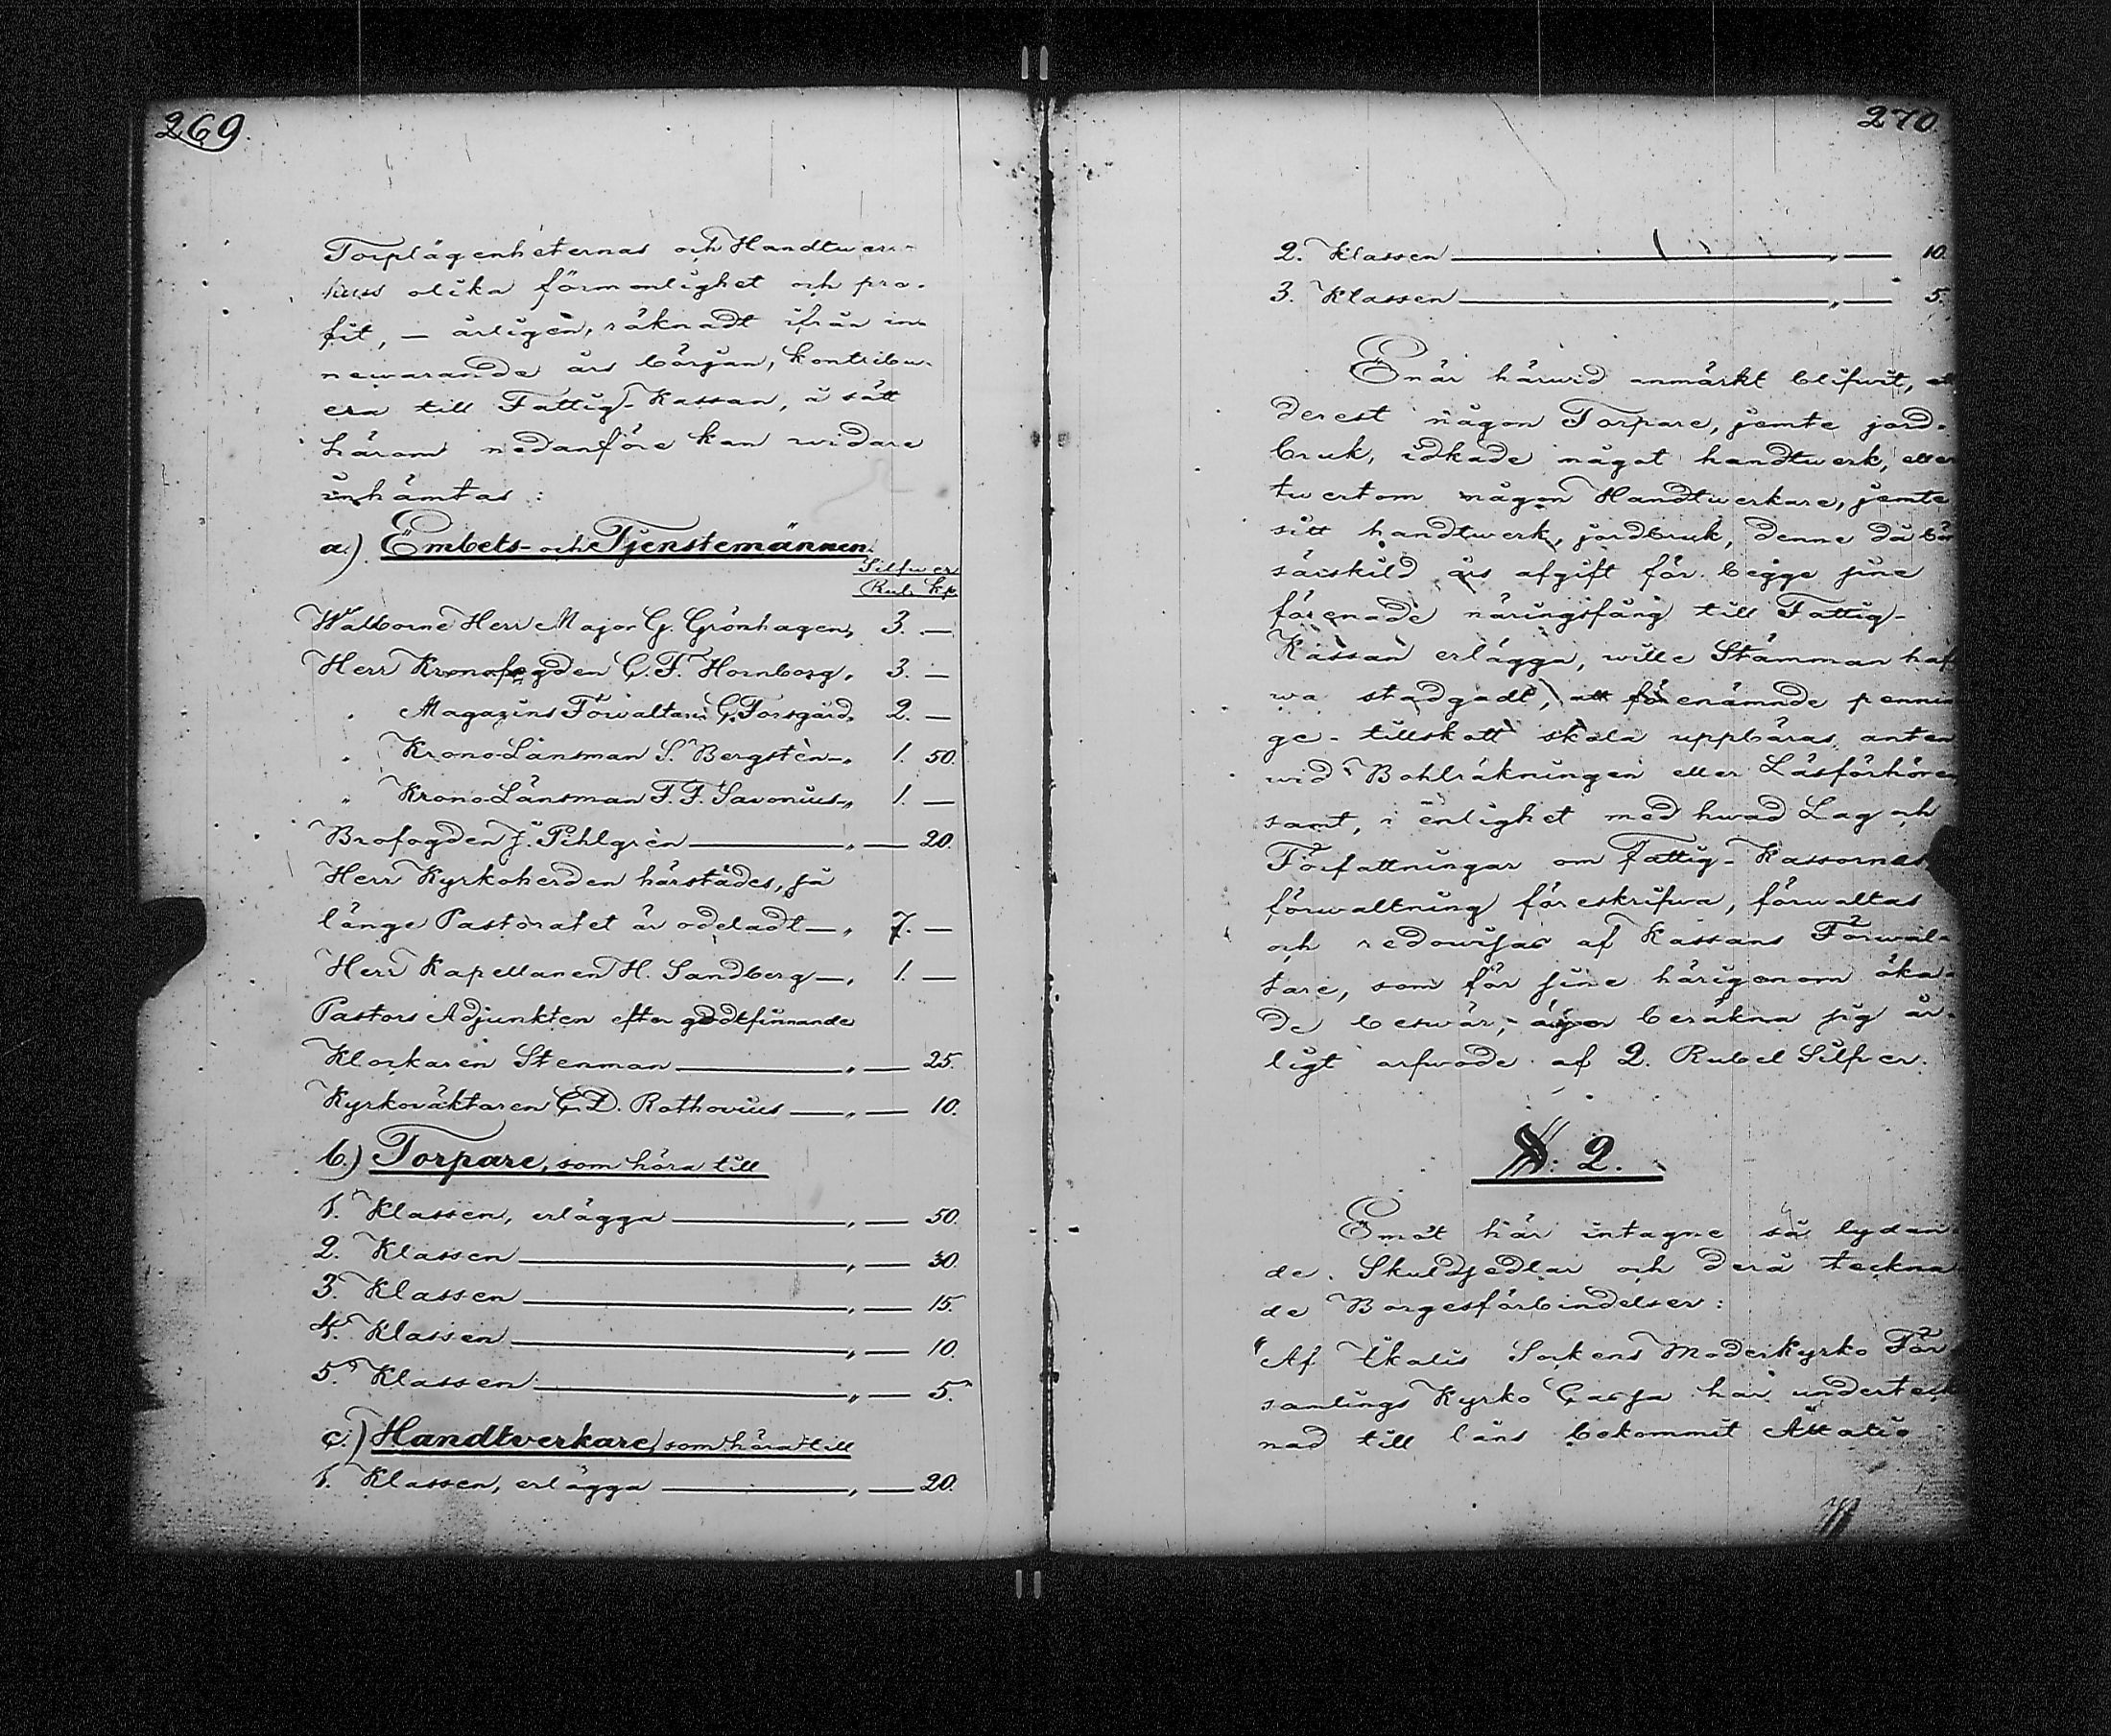 269.
Torplägenheternas och Handtwer-
kuss olika förmonlighet och pro-
fit, — årligen, räknadt ifrån in-
newarande års början, kontribu-
era till Fattig-Kassan, å sätt
härom nedanföre kan widare
inhämtas:
a.) Embets- och Tjenstemännen.
Silfwer
Rub. Kp.
Wälborne Herr Major G. Grönhagen, 3. —
Herr Kronofogden C. F. Hornborg, 3. —
" Magazins Förwaltaren C. Forsgård, 2. —
" Krono-Länsman S. Bergstén —, 1. 50.
" Krono-Länsman F. F. Savonius —, 1. —
Brofogden J. Pihlgrén — " — 20.
Herr Kyrkoherden härstädes, så
länge Pastoratet är odeladt —, 7. —
Herr Kapellanen H. Sandberg —, 1. —
Pastors Adjunkten efter godtfinnande
Klockaren Stenman — " — 25.
Kyrkoväktaren C. D. Rothovius — " — 10.
b.) Torpare, som höra till
1. Klassen, erlägga — " — 50.
2. Klassen — " — 30.
3. Klassen — " — 15.
4. Klassen — " — 10.
5. Klassen — " — 5.
c.) Handtverkare, som höra till
1. Klassen, erlägga — " — 20.
270.
2. Klassen — " — 10.
3. Klassen — " — 5.
Enär härwid anmärkt blifwit, att
derest någon Torpare, jemte jord-
bruk, idkade något handtwerk, eller
twertom någon Handtwerkare, jemte
sitt handtwerk, jordbruk, denne då bör
särskild års afgift för begge sine
förenade näringsfång till Fattig-
Kassan erlägga, wille Stämman haf
wa stadgadt, att förenämnde pennin
ge-tillskott skola uppbäras anten
wid Bohlräkningen eller Läsförhören
samt, i enlighet med hwad Lag och
Författningar om Fattig-Kassornas
förwaltning föreskrifwa, förwaltas
och redowisas af Kassans Förwal-
tare, som för sine härigenom öka-
de beswär, äger beräkna sig år-
ligt arfwode af 2. Rubel Silfver.
§: 2.
Emot här intagne så lydan-
de Skuldsedlar och derå teckna-
de Borgesförbindelser:
"Af Ikalis Sockens Moderkyrko För
samlings Kyrko Cassa har underteck
nad till låns bekommit Åttatio